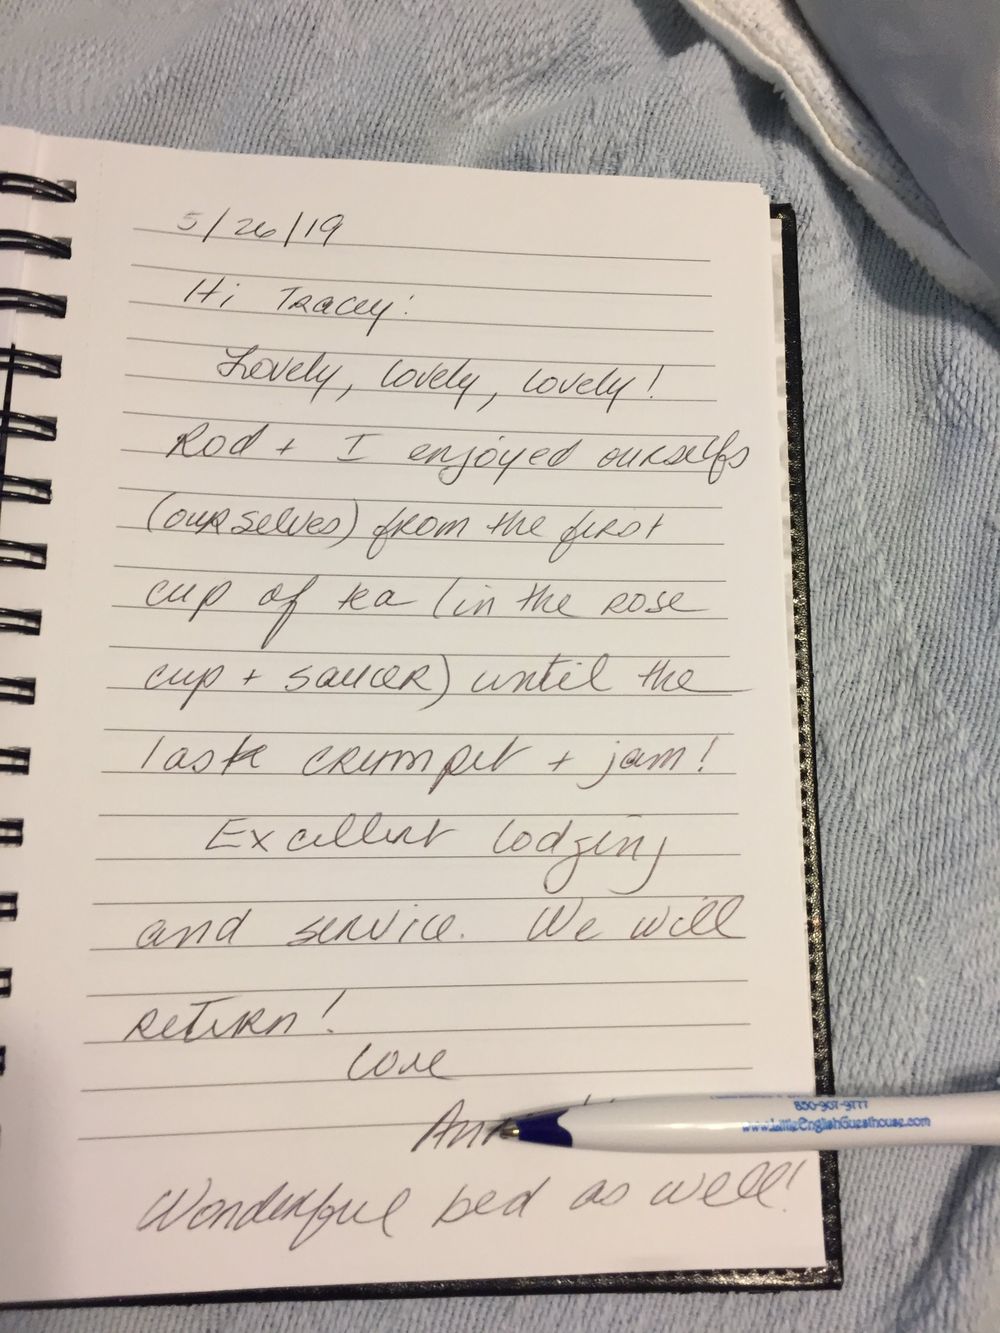 5/26/19
Hi Tracey!
Lovely, lovely, lovely!
Rod + I enjoyed ourselfs
(ourselves) from the first
cup of tea (in the rose
cup + saucer) until the
last crumpet + jam!
Excellent lodging
and service. We will
return!
Love
Wonderful bed as well!
850-907-9777
www.LittleEnglishGuesthouse.com